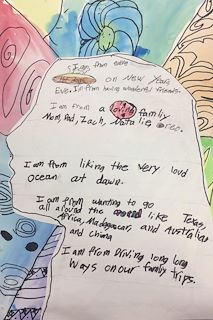 from every
on New Years
Eve. I'm from having wonderful friends.
I am from a loving family
Mom, Dad, Zach, Natalie, Bree.
I am from liking the very loud
ocean at dawn.
I am from wanting to go
all around the like Texas,
Africa, Madagascar, and Australia
and China
I am from Driving long long
Ways on our family trips.